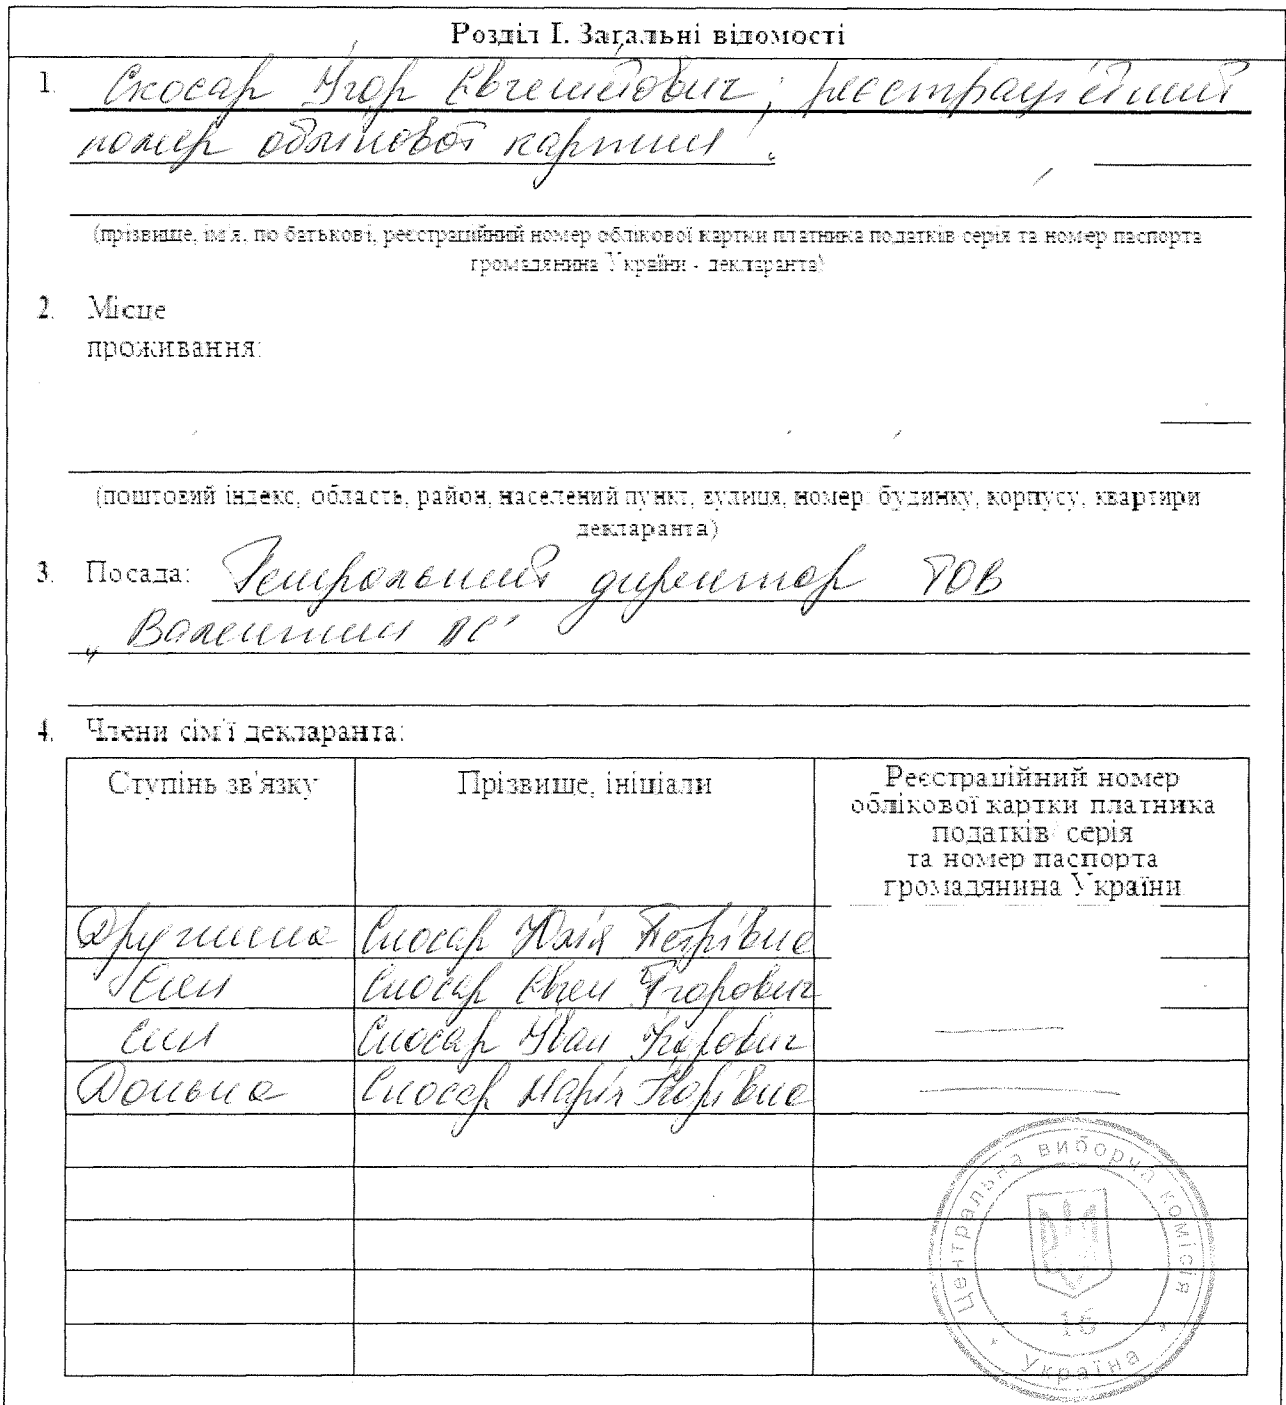 Розділ І. Загальні відомості
1. Скосар Ігор Євгенійович; реєстраційний
номер облікової картки
(прізвище, ім'я, по батькові, реєстраційний номер облікової картки платника податків/серія та номер паспорта
громадянина України - декларанта)
2. Місце
проживання:
(поштовий індекс, область, район, населений пункт, вулиця, номер: будинку, корпусу, квартири
декларанта)
3. Посада: Генеральний директор ТОВ
„Валентин ПС"
4. Члени сім'ї декларанта:
Ступінь зв'язку Прізвище, ініціали Реєстраційний номер
облікової картки платника
податків/ серія
та номер паспорта
громадянина України
Дружина Скосар Юлія Петрівна
Син Скосар Євген Ігорович
Син Скосар Іван Ігорович
Донька Скосар Марія Ігорівна
Центральна виборча комісія
16
* Україна *